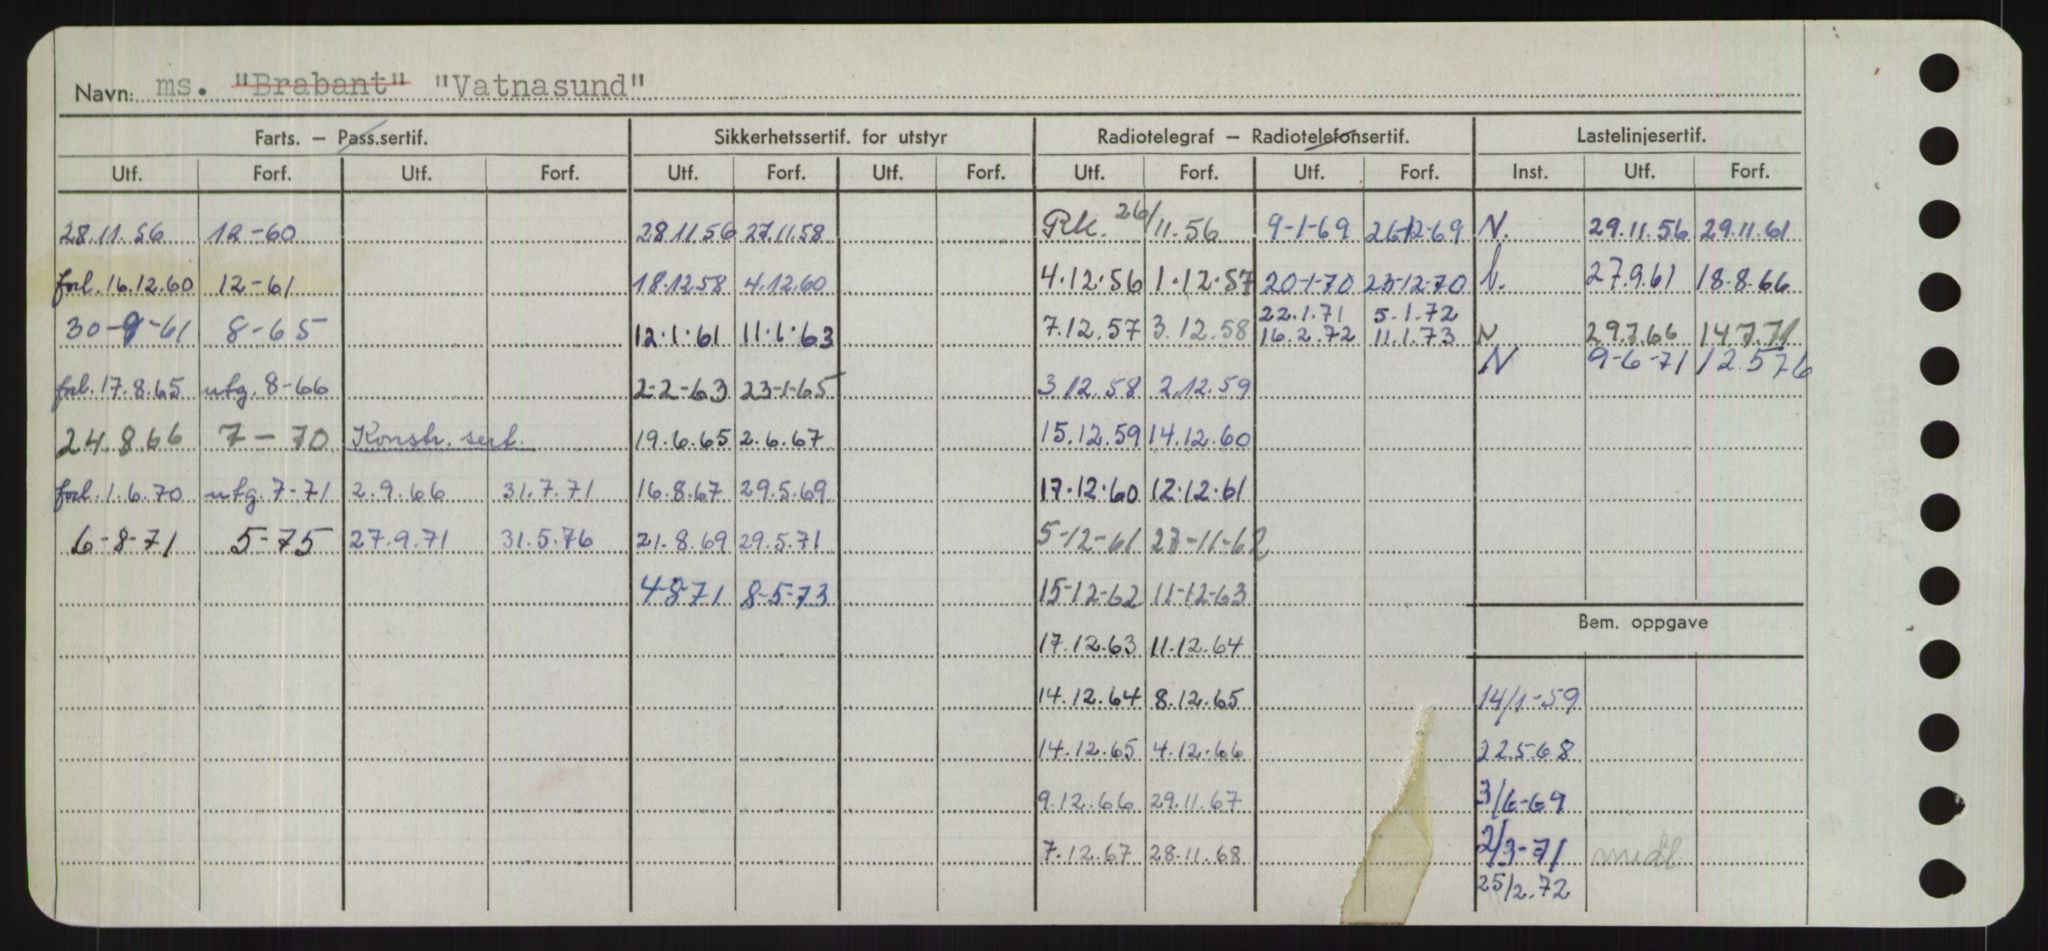 Navn: ms. "Brabant" "Vatnasund"
Farts. – Pass.sertif. Sikkerhetssertif. for utstyr Radiotelegraf – Radiotelefonsertif. Lastelinjesertif.
Utf. Forf. Utf. Forf. Utf. Forf. Utf. Forf. Utf. Forf. Utf. Forf. Inst. Utf. Forf.
28.11.56 12-60 28 11 56 27.11.58 Rk. 26/11.56 9-1-69 26-12-69 N. 29.11.56 29.11.61
forl. 16.12.60 12-61 18.12.58 4.12.60 4.12.56 1.12.57 20-1-70 23-12-70 27.9.61 18.8.66
22.1.71 5.1.72
30-9-61 8-65 12.1.61 11.1.63 7.12.57 3.12.58 16.2.72 11.1.73 N 29.7.66 14.7.71
N 9-6-71 12.5.76
forl. 17.8.65 utg. 8-66 2-2-63 23-1-65 3.12.58 2.12.59
24.8.66 7-70 Konstr. sert. 19.6.65 2.6.67 15.12.59 14.12.60
forl. 1.6.70 utg. 7-71 2.9.66 31.7.71 16.8.67 29.5.69 17.12.60 12.12.61
6-8-71 5-75 27.9.71 31.5.76 21.8.69 29.5.71 5-12-61 27-11-62
4-8-71 8-5-73 15-12-62 11-12-63
Bem. oppgave
17.12.63 11.12.64
14.12.64 8.12.65 14/1-59
14.12.65 4.12.66 22.5.68
9.12.66 29.11.67 3/6-69
7.12.67 28.11.68 2/3-71
25/2.72